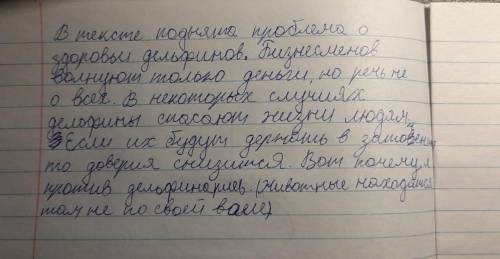 В тексте поднята проблема о
здоровьи дельфинов. Бизнесменов
волнуют только деньги, но речь не
о всех. В некоторых случиях
дельфины спасают жизни людям.
Если их будут держать в
то доверия снизится. Вот почему я
против дельфинариев. (животные находятся
там не по своей воле)